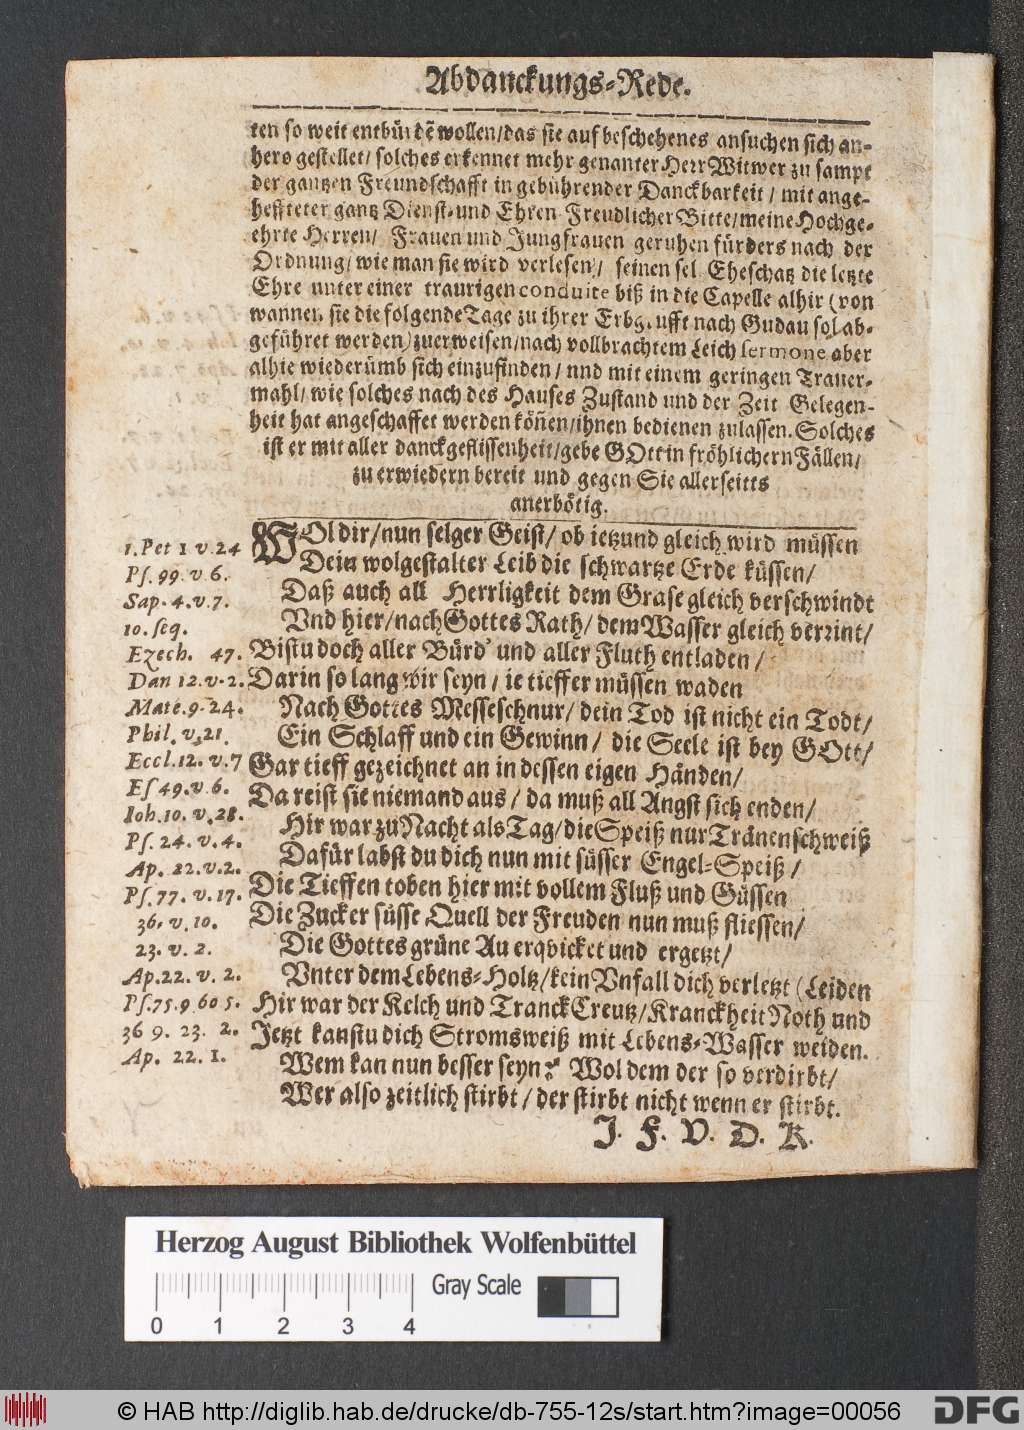 Abdanckungs-Rede.
ten so weit entbürdẽ wollen/das sie auf beschehenes ansuchen sich an-
hero gestellet/ solches erkennet mehr genanter Herr Witwer zu sampt
der gantzen Freundschafft in gebührender Danckbarkeit / mit ange-
heffteter gantz Dienst- und Ehren Freudlicher Bitte/ meine Hochge-
ehrte Herren/ Frauen und Jungfrauen geruhen fürders nach der
Ordnung/ wie man sie wird verlesen/ seinen sel Eheschatz die letzte
Ehre unter einer traurigen conduite biß in die Capelle alhir (von
wannen sie die folgende Tage zu ihrer Erbgrufft nach Gudau sol ab-
geführet werden) zuerweisen/nach vollbrachtem Leich sermone aber
alhie wiederümb sich einzufinden/ und mit einem geringen Trauer-
mahl/ wie solches nach des Hauses Zustand und der Zeit Gelegen-
heit hat angeschaffet werden köñen/ihnen bedienen zulassen. Solches
ist er mit aller danckgeflissenheit/gebe GOtt in fröhlichern Fällen/
zu erwiedern bereit und gegen Sie allerseitts
anerbötig.
WOl dir/nun selger Geist/ ob ietzund gleich wird müssen
1. Pet 1 v. 24 Dein wolgestalter Leib die schwartze Erde küssen/
Ps. 99. v. 6. Daß auch all Herrligkeit dem Grase gleich verschwindt
Sap. 4. v. 7. Vnd hier/nach Gottes Rath/ dem Wasser gleich verrint/
10. seq.
Ezech. 47. Bistu doch aller Bürd' und aller Fluth entladen/
Dan 12. v. 2. Darin so lang wir seyn/ ie tieffer müssen waden
Matt. 9. 24. Nach Gottes Messeschnur/ dein Tod ist nicht ein Todt/
Phil. v. 21. Ein Schlaff und ein Gewinn/ die Seele ist bey GOtt/
Eccl. 12. v. 7 Gar tieff gezeichnet an in dessen eigen Händen/
Es 49. v. 6. Da reist sie niemand aus/ da muß all Angst sich enden/
Ioh. 10. v. 28. Hir war zu Nacht als Tag/die Speiß nur Tränenschweiß
Ps. 24. v. 4. Dafür labst du dich nun mit süsser Engel-Speiß/
Ap. 22. v. 2.
Ps. 77. v. 17. Die Tieffen toben hier mit vollem Fluß und Güssen
36. v. 10. Die Zucker süsse Quell der Freuden nun muß fliessen/
23. v. 2. Die Gottes grüne Au erqvicket und ergetzt/
Ap. 22. v. 2. Vnter dem Lebens-Holtz/kein Vnfall dich verletzt (Leiden
Ps. 75. 9 60 5. Hir war der Kelch und Tranck Creutz/Kranckheit Noth und
36 9. 23. 2. Jetzt kanstu dich Stromsweiß mit Lebens-Wasser weiden.
Ap. 22. 1. Wem kan nun besser seyn? Wol dem der so verdirbt/
Wer also zeitlich stirbt/ der stirbt nicht wenn er stirbt.
J. F. V. D. K.
Herzog August Bibliothek Wolfenbüttel
Gray Scale
0 1 2 3 4
© HAB http://diglib.hab.de/drucke/db-755-12s/start.htm?image=00056
DFG